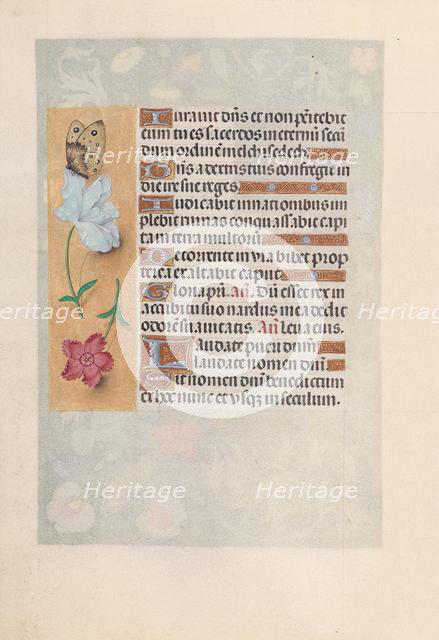 Iuravit dn̄s et non penitebit
eum tu es sacerdos in eternū secū
dum ordinem melchisedech
Dn̄s a dextris tuis confregit in
die ire sue reges.
Iudicabit in nationibus im
plebit ruinas conquassabit capi
ta in terra multorū
De torrente in via bibet prop
terea exaltabit caput
Gloria pr̄i. An̄. Dū esset rex in
accubitu suo nardus mea dedit
odorē suavitatis. An̄. Leva eius.
Laudate pueri dn̄m
laudate nomen dn̄i
Sit nomen dn̄i benedictum
ex hoc nunc et usqȝ in seculum.
Heritage Heritage
Heritage Heritage
Heritage Heritage